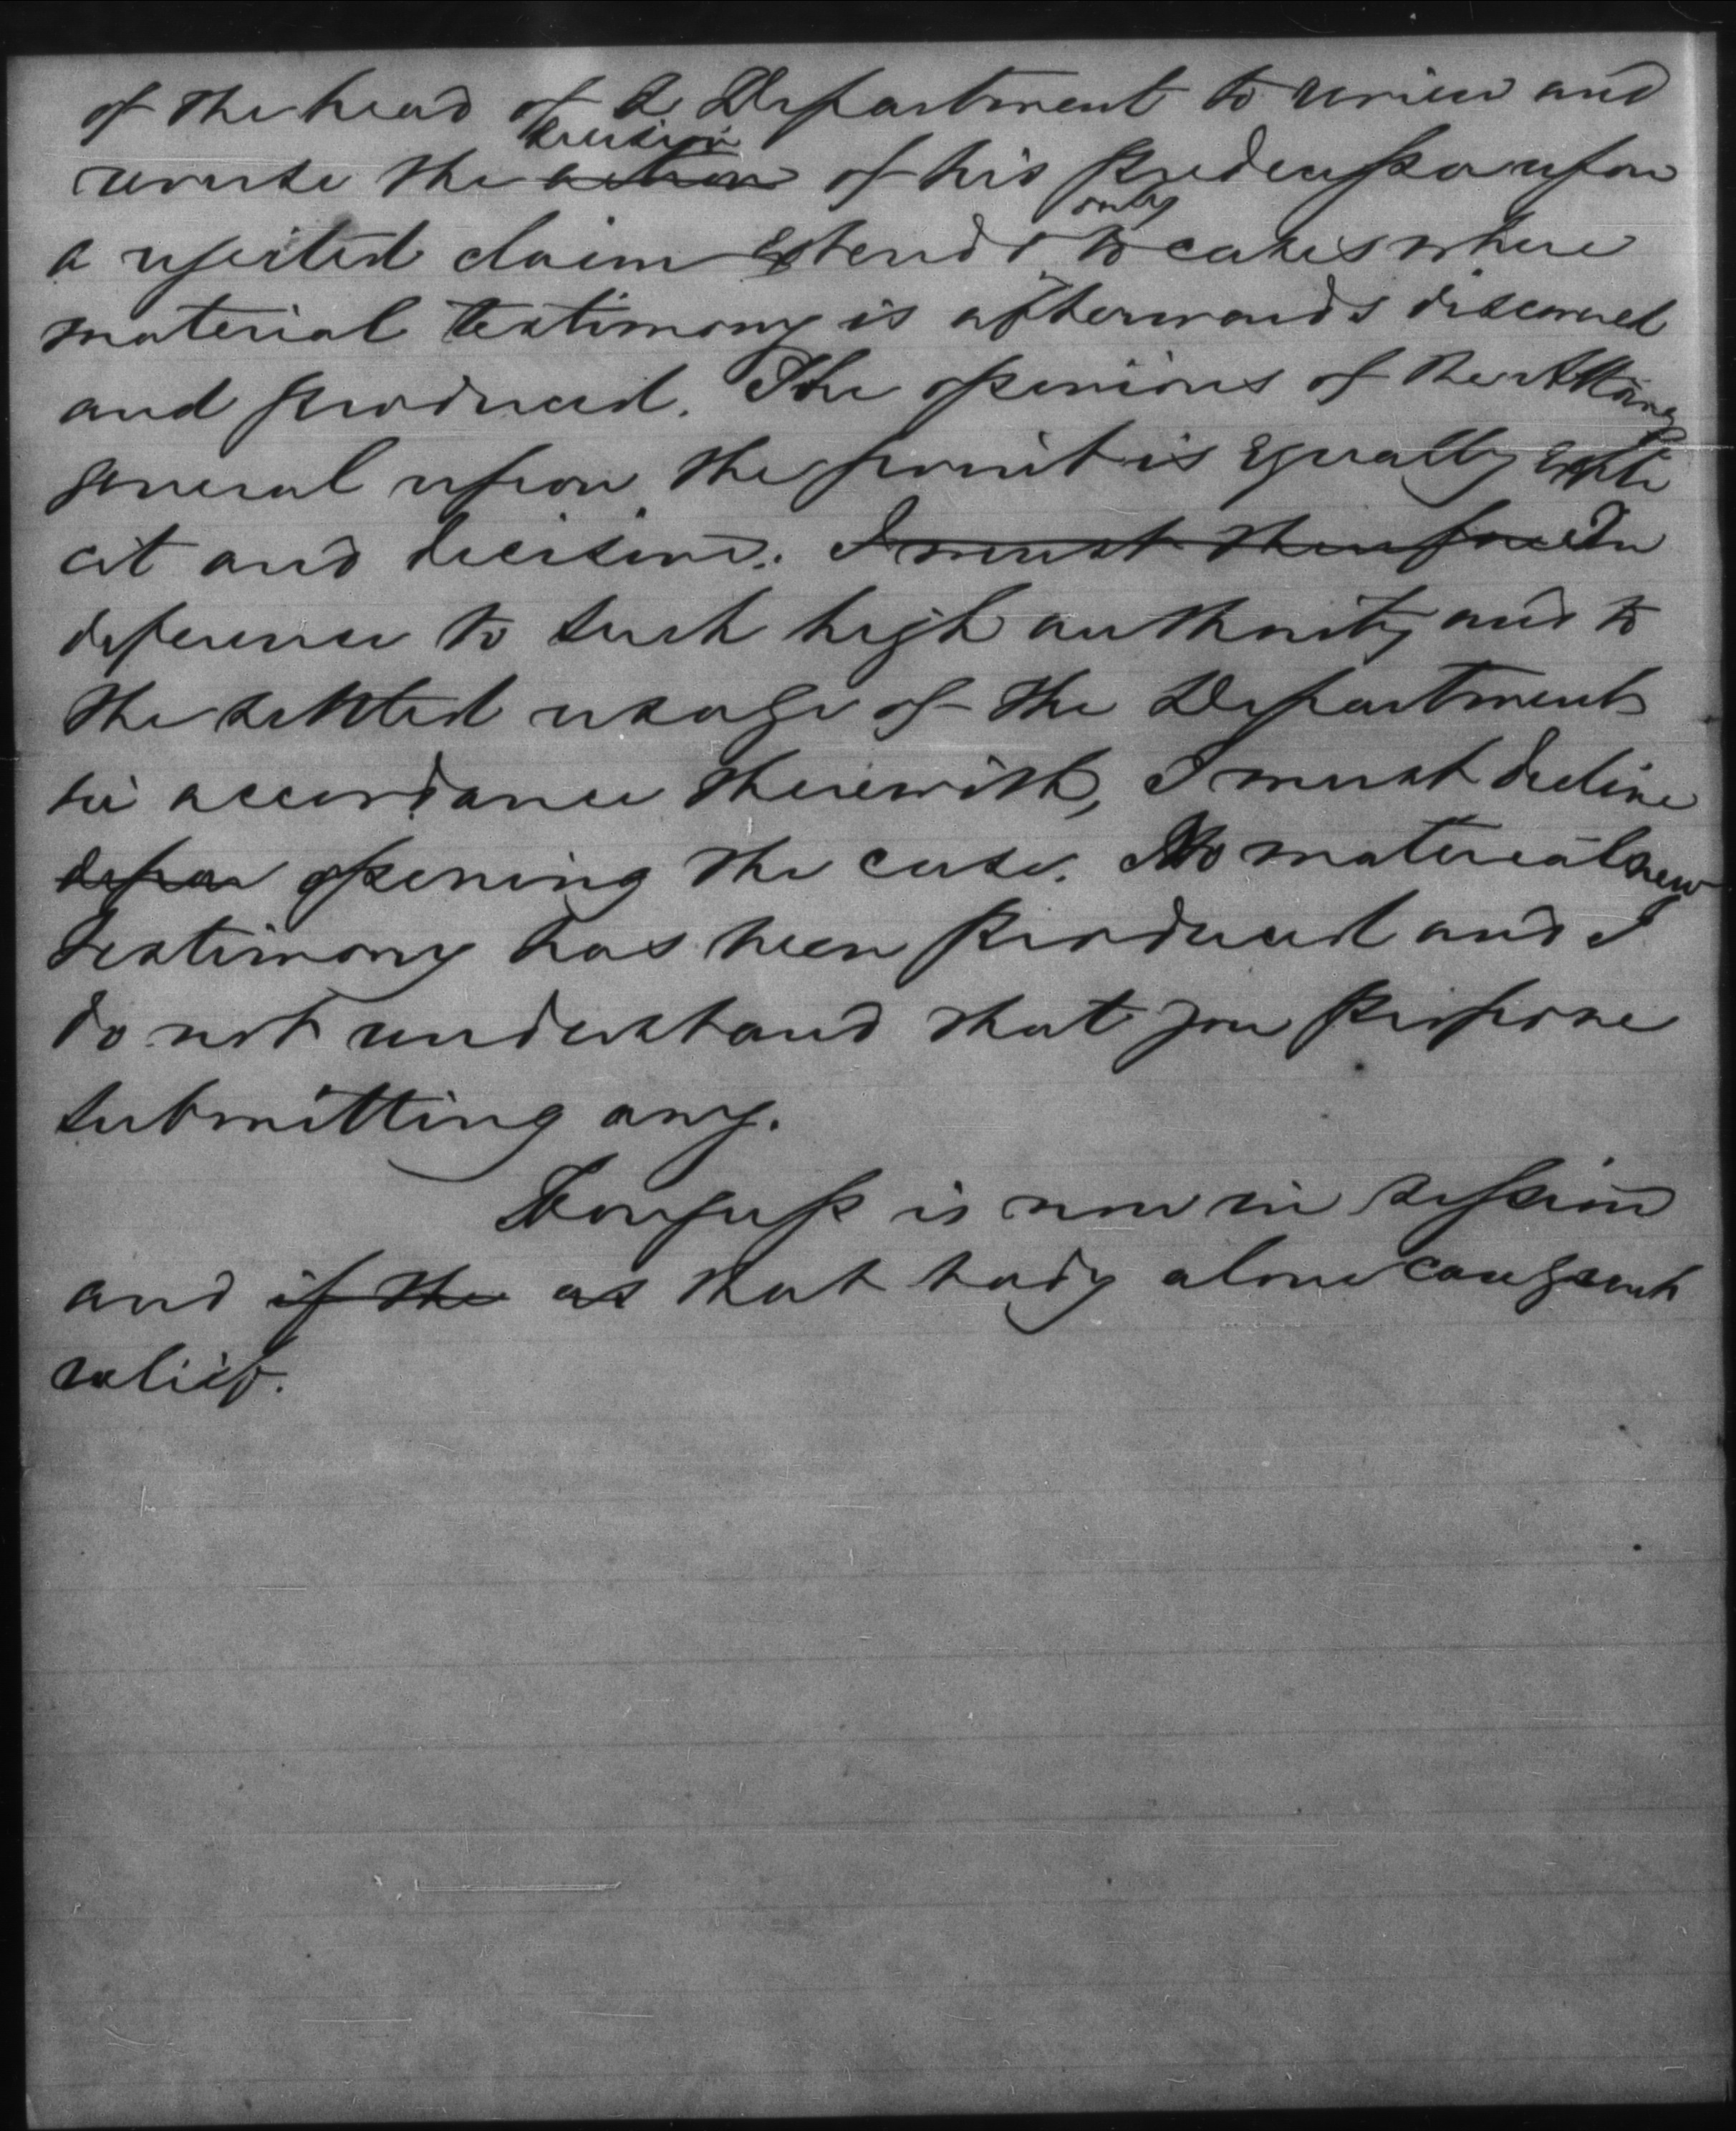 of the head of a Department to review and
decision
reverse the action of his predecessor upon
only
a rejected claim extends to cases where
material testimony is afterwards discovered
and produced. The opinions of the Attorney
general upon the point is equally expli
cit and decisive. I must therefore In
deference to such high authority and to
the settled usage of the Department
in accordance therewith, I must decline
opening the case. No material new
testimony has been produced and I
do not understand that you propose
submitting any.
Congress is now in session
and if the as that body alone can grant
relief.